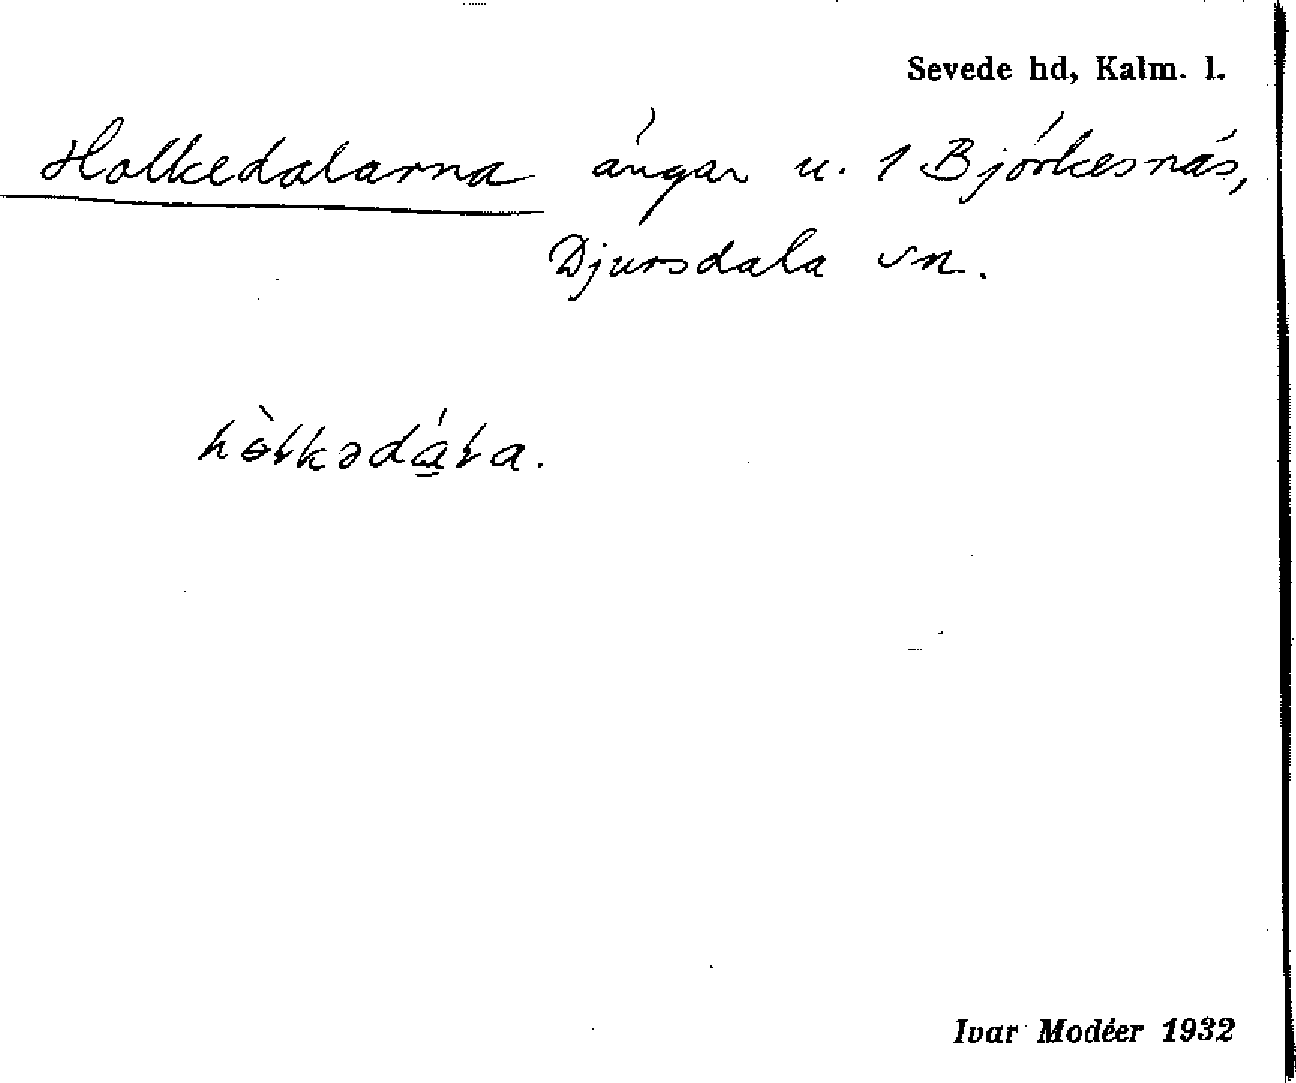 Sevede hd, Kalm. l.
Holkedalarna ängar u. 1 Björkesnäs,
Djursdala sn.
hòlkədála.
Ivar Modéer 1932